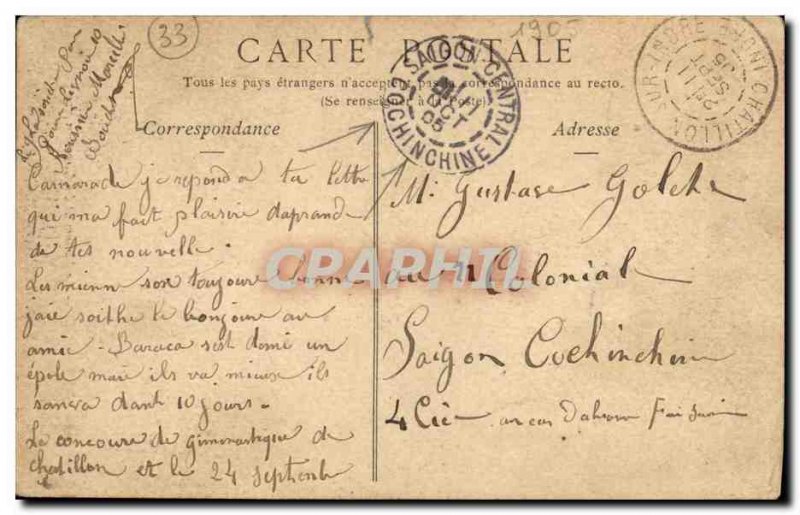 33
1905
CARTE POSTALE
Tous les pays étrangers n'acceptent pas la correspondance au recto.
(Se renseigner à la Poste)
Correspondance
Adresse
SAIGON CENTRAL
COCHINCHINE
OCT
05
CHATILLON-SUR-INDRE
11
SEPT
05
Camarade je repond a ta lettre
qui ma fait plaisire daprandre
de tes nouvelle.
Les mienn son toujour bonne
jaie soithe le bonjoure au
amie - Baraca sest domi un
épole mais ils va mieux ils
sanera dant 10 jours -
La concoure de gimnastique de
Chatillon et le 24 septembre
Mr Gustave
au 11 Colonial
Saigon Cochinchine
4 Cie en cas Faire Suivre
CPAPHIL